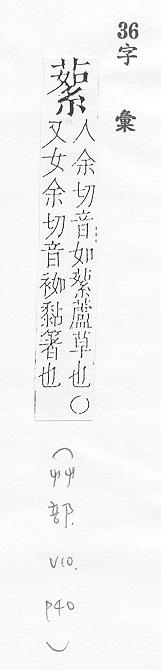 36字　彙
蕠
人余切音如蕠藘草也○
又女余切音袽黏著也
(艸部. V10. P40)